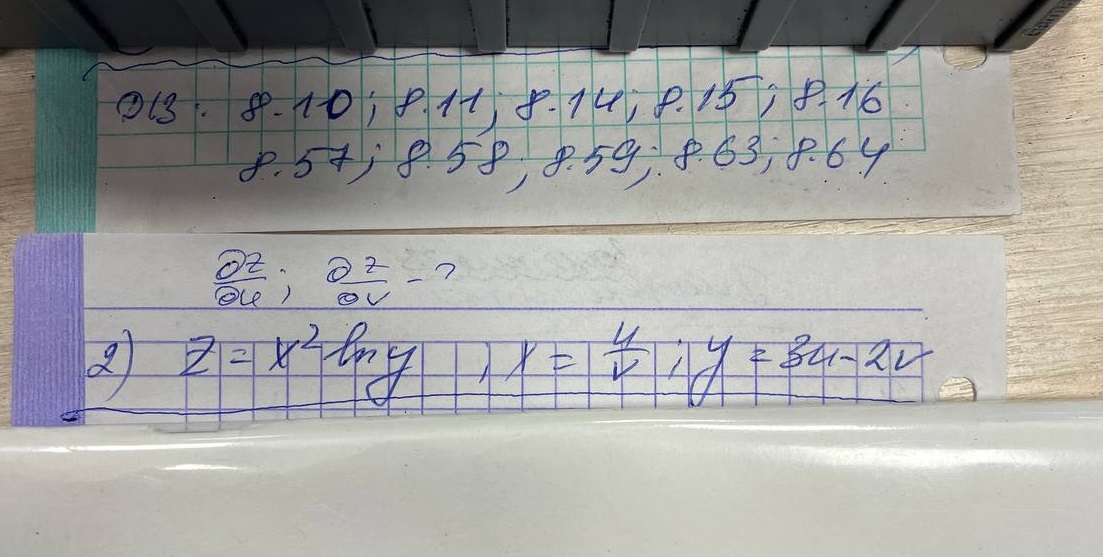 ДЗ: 8.10; 8.11; 8.14; 8.15; 8.16
8.57; 8.58; 8.59; 8.63; 8.64
∂z/∂u; ∂z/∂v - ?
2) z = x² ln y, x = u/v; y = 3u - 2v